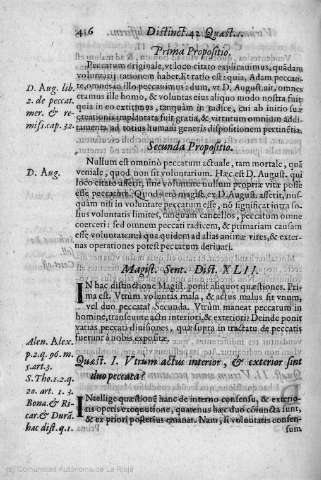 416 Distinct. 42 Quæst.
Prima Propositio.
Peccatum originale, vt loco citato explicauimus, quãdam
voluntarij rationem habet. Et ratio est: quia, Adam peccan
te, omnes in illo peccauimus: dum, vt D. August. ait, omnes
eramus ille homo, & voluntas eius aliquo modo nostra fuit
quia in eo extitimus, tanquàm in radice, cui ab initio suæ
creationis implantata fuit gratia, & virtutum omnium addi
tamenta ad totius humani generis dispositionem pertinẽtia.
D. Aug. lib.
2. de peccat.
mer. & re-
miss. cap. 32.
Secunda Propositio.
Nullum est omninò peccatum actuale, tam mortale, quã
veniale, quod non sit voluntarium. Hæc est D. August. qui
loco citato asserit, sine voluntate nullum propriæ vitæ posse
esse peccatum. Quod verò magist. ex D. August. asserit, nus-
quàm nisi in voluntate peccatum esse, nõ significat intra ip-
sius voluntatis limites, tanquàm cancellos, peccatum omne
coerceri: sed omnem peccati radicem, & primariam causam
esse voluntatem: à qua quidem ad alias animæ vires, & exter-
nas operationes potest peccatum deriuari.
D. Aug.
Magist. Sent. Dist. XLII.
IN hac distinctione Magist. ponit aliquot quæstiones. Pri-
ma est. Vtrum voluntas mala, & actus malus sit vnum,
vel duo peccata? Secunda. Vtrum maneat peccatum in
homine, transeunte actu interiori, & exteriori: Deinde ponit
varias peccati diuisiones, quæ supra in tractatu de peccatis
fuerunt à nobis expositæ.
Quæst. I. Vtrum actus interior, & exterior sint
duo peccata?
Alen. Alex.
p. 2. q. 96. m.
5. art. 3.
S. Tho. 1. 2. q.
20. art. 1. 3.
Bona. & Ri-
car. & Durã.
hac dist. q. 1.
INtellige quæstionẽ hanc de interno consensu, & exterio-
ris operis exequutione, quatenus hæc duo cõiuncta sunt,
& ex priori posterius emanat. Nam, si voluntatis consen-
sum
(c) Comunidad Autónoma de La Rioja